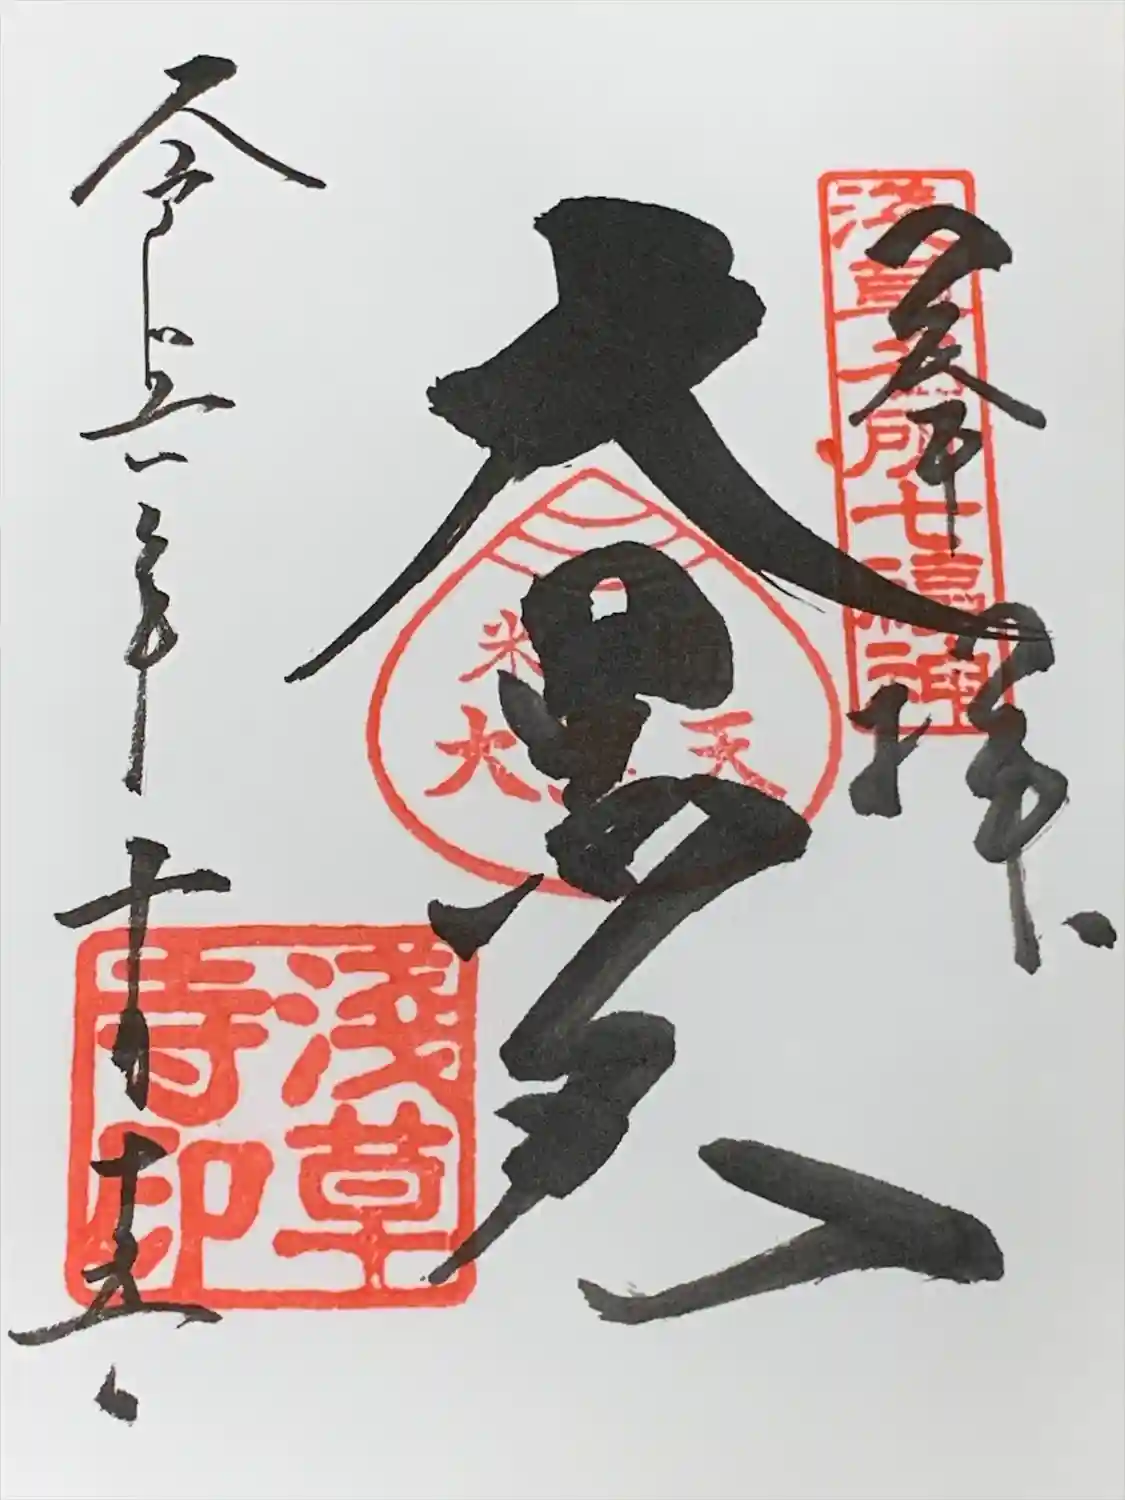 奉拝
淺草名所七福神
大黒天
米
大黒天
令和六年十月十五日
淺草
寺印